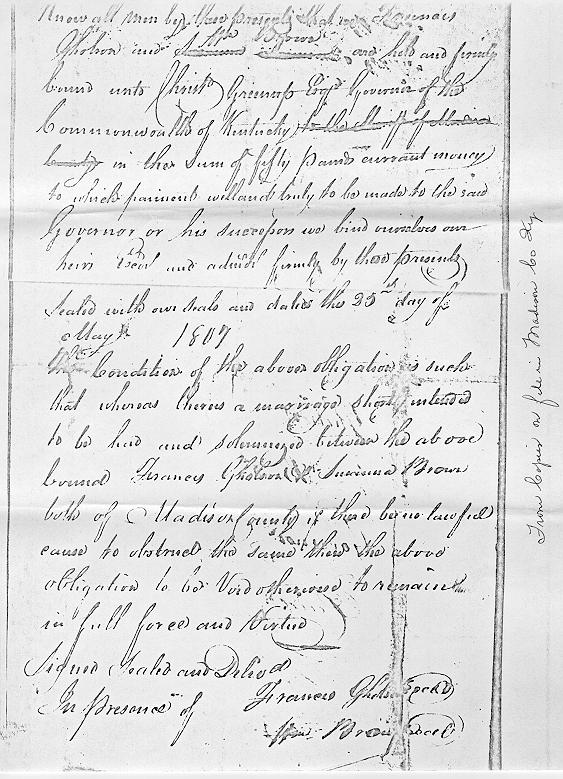 Know all men by these presents that we Francis
Gholson and Wm Brown are held and firmly
bound unto Christr Greenup Esqr Governor of the
Commonwealth of Kentucky
in the sum of fifty pounds currant money
to which paiment well and truly to be made to the said
Governor or his successors we bind ourselves our
heirs Exrs and admrs firmly by these presents
Sealed with our seals and dated this 25th day of
May 1807
The Condition of the above obligation is such
that whereas theres a marriage shortly intended
to be had and solemnized between the above
bound Francis Gholson & Susanna Brown
both of Madison County if there be no lawfull
cause to obstruct the same then the above
obligation to be Void otherwise to remain
in full force and Virtue
Signed Sealed and Delivd
In presence of Francis Gholson Seal
Wm Brown Seal
From Copies on file in Madison Co Ky